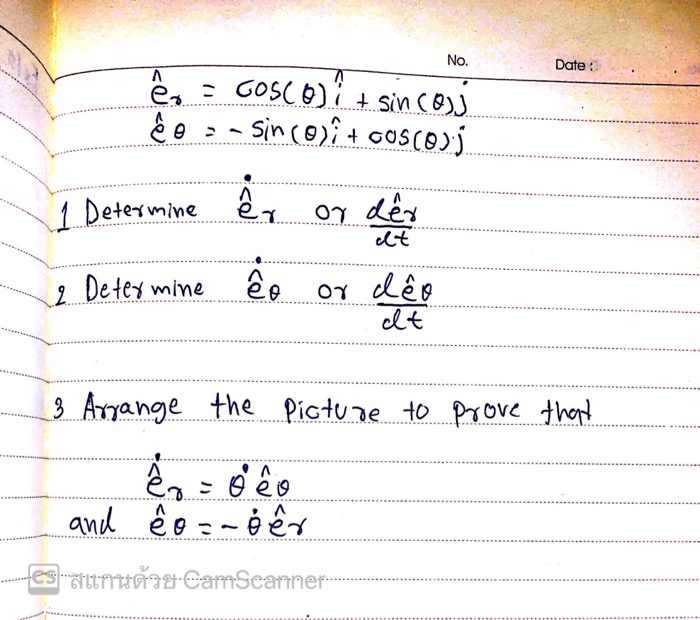 No. Date :
ê_r = cos(θ)î + sin(θ)j
ê_θ = - sin(θ)î + cos(θ)j
1 Determine ê̇_r or dê_r/dt
2 Determine ê̇_θ or dê_θ/dt
3 Arrange the picture to prove that
ê̇_r = θ̇ ê_θ
and ê_θ = - θ̇ ê_r
CS สแกนด้วย CamScanner